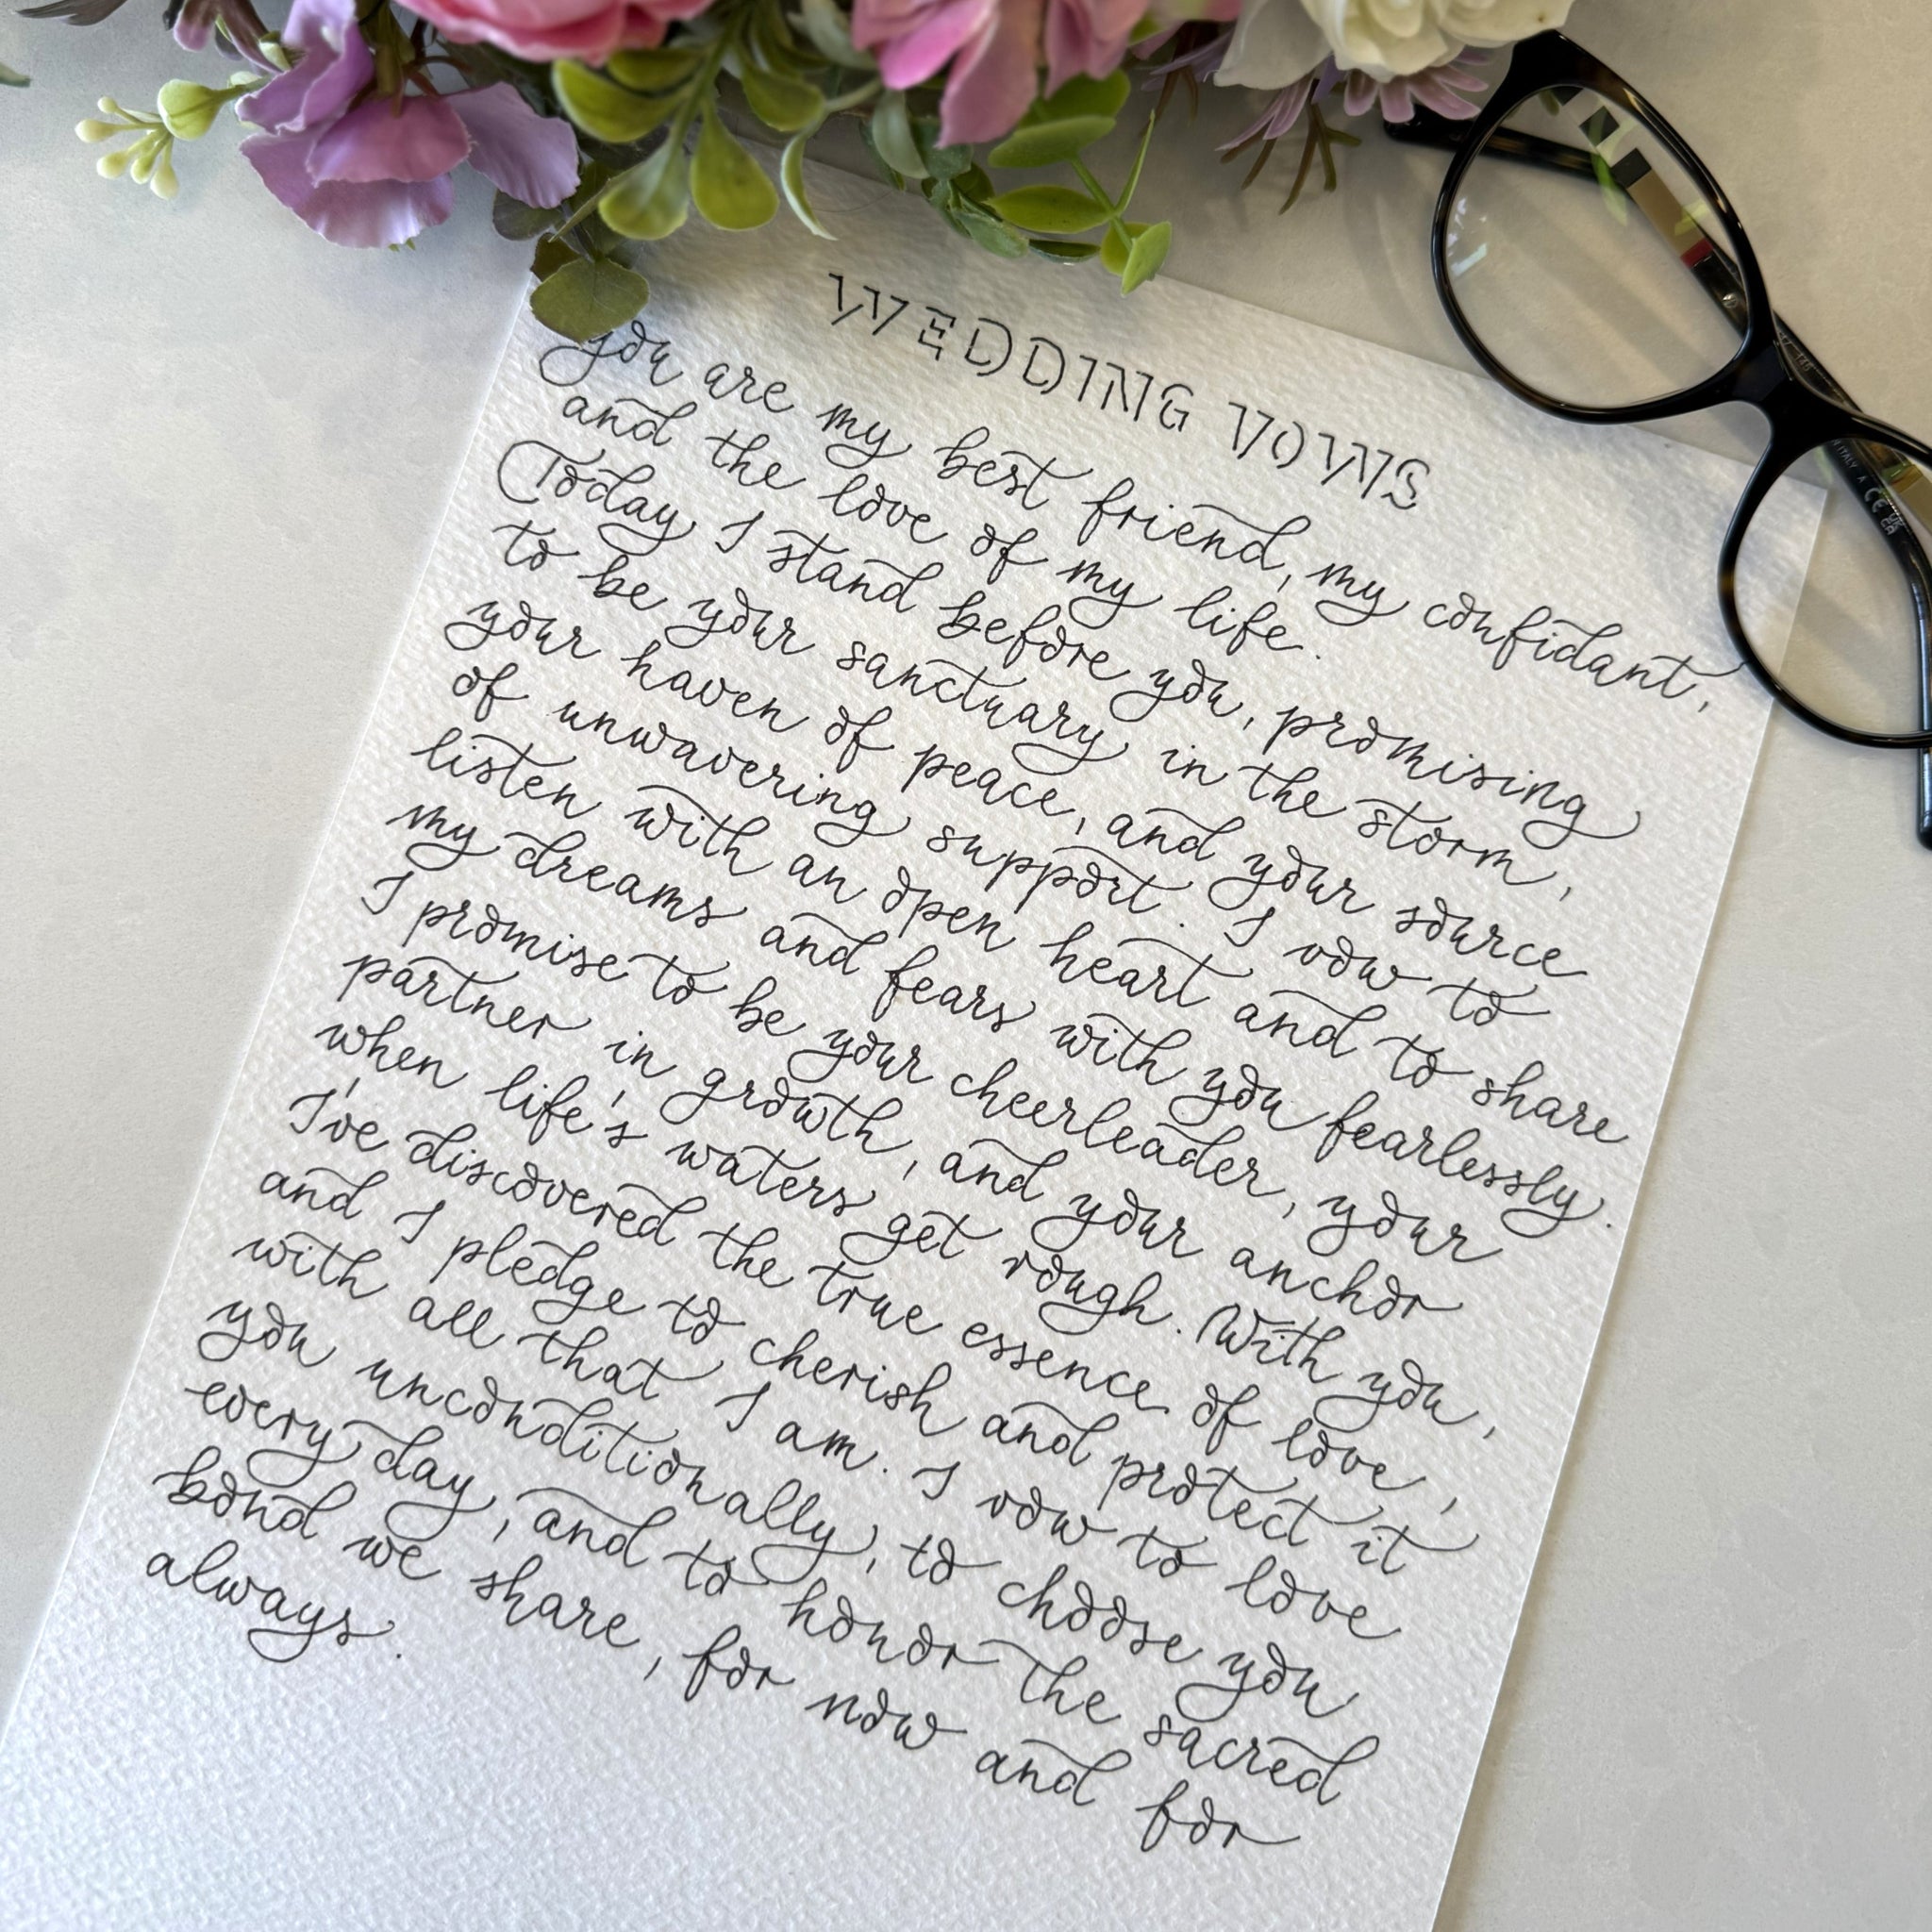 WEDDING VOWS
you are my best friend, my confidant,
and the love of my life.
Today I stand before you, promising
to be your sanctuary in the storm,
your haven of peace, and your source
of unwavering support. I vow to
listen with an open heart and to share
my dreams and fears with you fearlessly.
I promise to be your cheerleader, your
partner in growth, and your anchor
when life's waters get rough. With you,
I've discovered the true essence of love,
and I pledge to cherish and protect it
with all that I am. I vow to love
you unconditionally, to choose you
every day, and to honor the sacred
bond we share, for now and for
always.
ITALY
CE
UK
CA